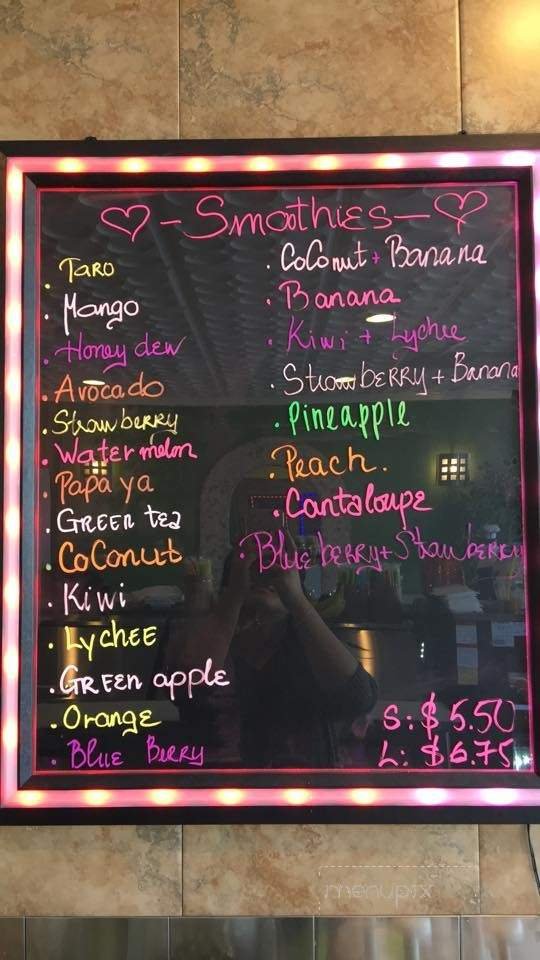 - Smoothies -
. Taro
. Mango
. Honey dew
. Avocado
. Strawberry
. Water melon
. Papa ya
. GREEN tea
. CoConut
. Kiwi
. LychEE
. GREEN apple
. Orange
. BluE BERRY
. CoConut + Banana
. Banana
. Kiwi + Lychee
. StrawbERRY + Banana
. Pineapple
. Peach.
. Cantaloupe
. Blueberry + Strawberry
S: $5.50
L: $6.75
menupix